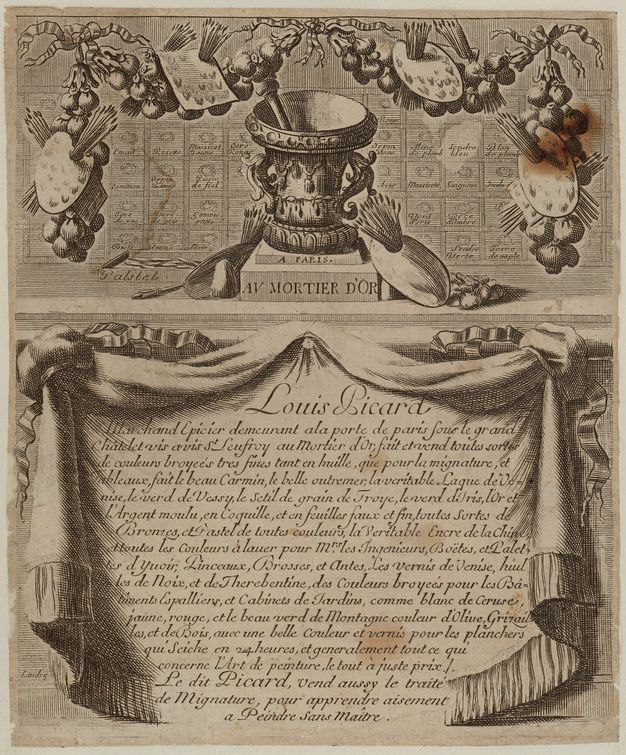 Email
Rozette
Massicot
Jaune
Ocre
Rouge
Orpin
Jaune
Mine
de plomb
Sendre
bleu
Blan
de plomb
Carmin
Orpin
Rouge
Pierre
de fiel
Azur
Massicote
Sanguine
Inde
Ocre
Verd
de Vessie
Gomme
gutte
Verd
d'Iris
Terre
d'Ombre
Bistre
Noir
Sendre
Verte
Terre
de naple
Palstel
A PARIS.
AV MORTIER D'OR
Louis Picard
Marchand Epicier demeurant ala porte de paris sous le grand
Châtelet vis avis St. Leufroy au Mortier d'Or, fait et vend toutes sortes
de couleurs broyeés tres fines tant en huille, que pour la mignature, et
tableaux, fait le beau Carmin, le belle outremer, la veritable Laque de Ve-
nise, le verd de Vessy, le Setil de grain de Troye, le verd d'Iris, l'Or et
l'Argent moulu, en Coquille, et en feuilles faux et fin, toutes Sortes de
Bronzes, et Pastel de toutes couleurs, la Veritable Encre de la Chine
et toutes les Couleurs à lauer pour Mrs. les Ingenieurs, Boëtes, et Palet-
tes d'Yuoir, Pinceaux, Brosses, et Antes, Les Vernis de Venise, huil
les de Noix, et de Therebentine, des Couleurs broyeés pour les Bâ-
timents Espalliers, et Cabinets de Jardins, comme blanc de Ceruse,
jaune, rouge, et le beau verd de Montagne couleur d'Oliue, Grizail
les, et de Bois, auec une belle Couleur et vernis pour les planchers
qui Seiche en 24 heures, et generalement tout ce qui
concerne l'Art de peinture, le tout à juste prix /.
Le dit Picard, vend aussy le traité
de Mignature, pour apprendre aisement
a Peindre Sans Maître.
Landry